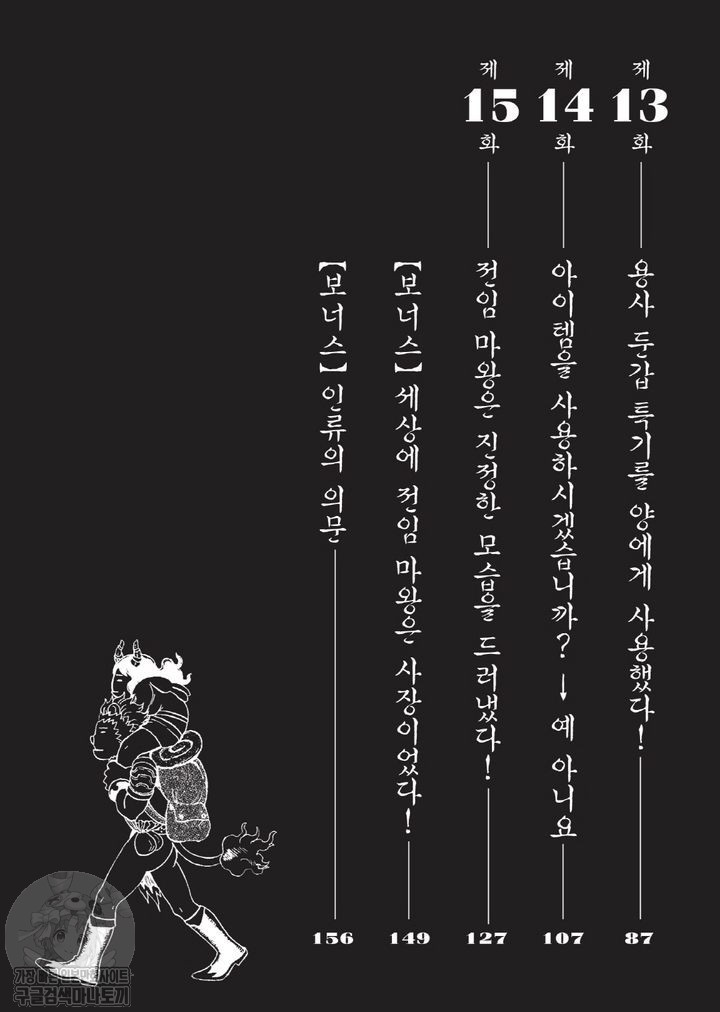 제
13
화
용사 둔갑 특기를 양에게 사용했다!
87
제
14
화
아이템을 사용하시겠습니까? → 예 아니요
107
제
15
화
전임 마왕은 진정한 모습을 드러냈다!
127
【보너스】 세상에 전임 마왕은 사장이었다!
149
【보너스】 인류의 의문
156
가장 빠른 일본만화사이트
구글검색마나토끼